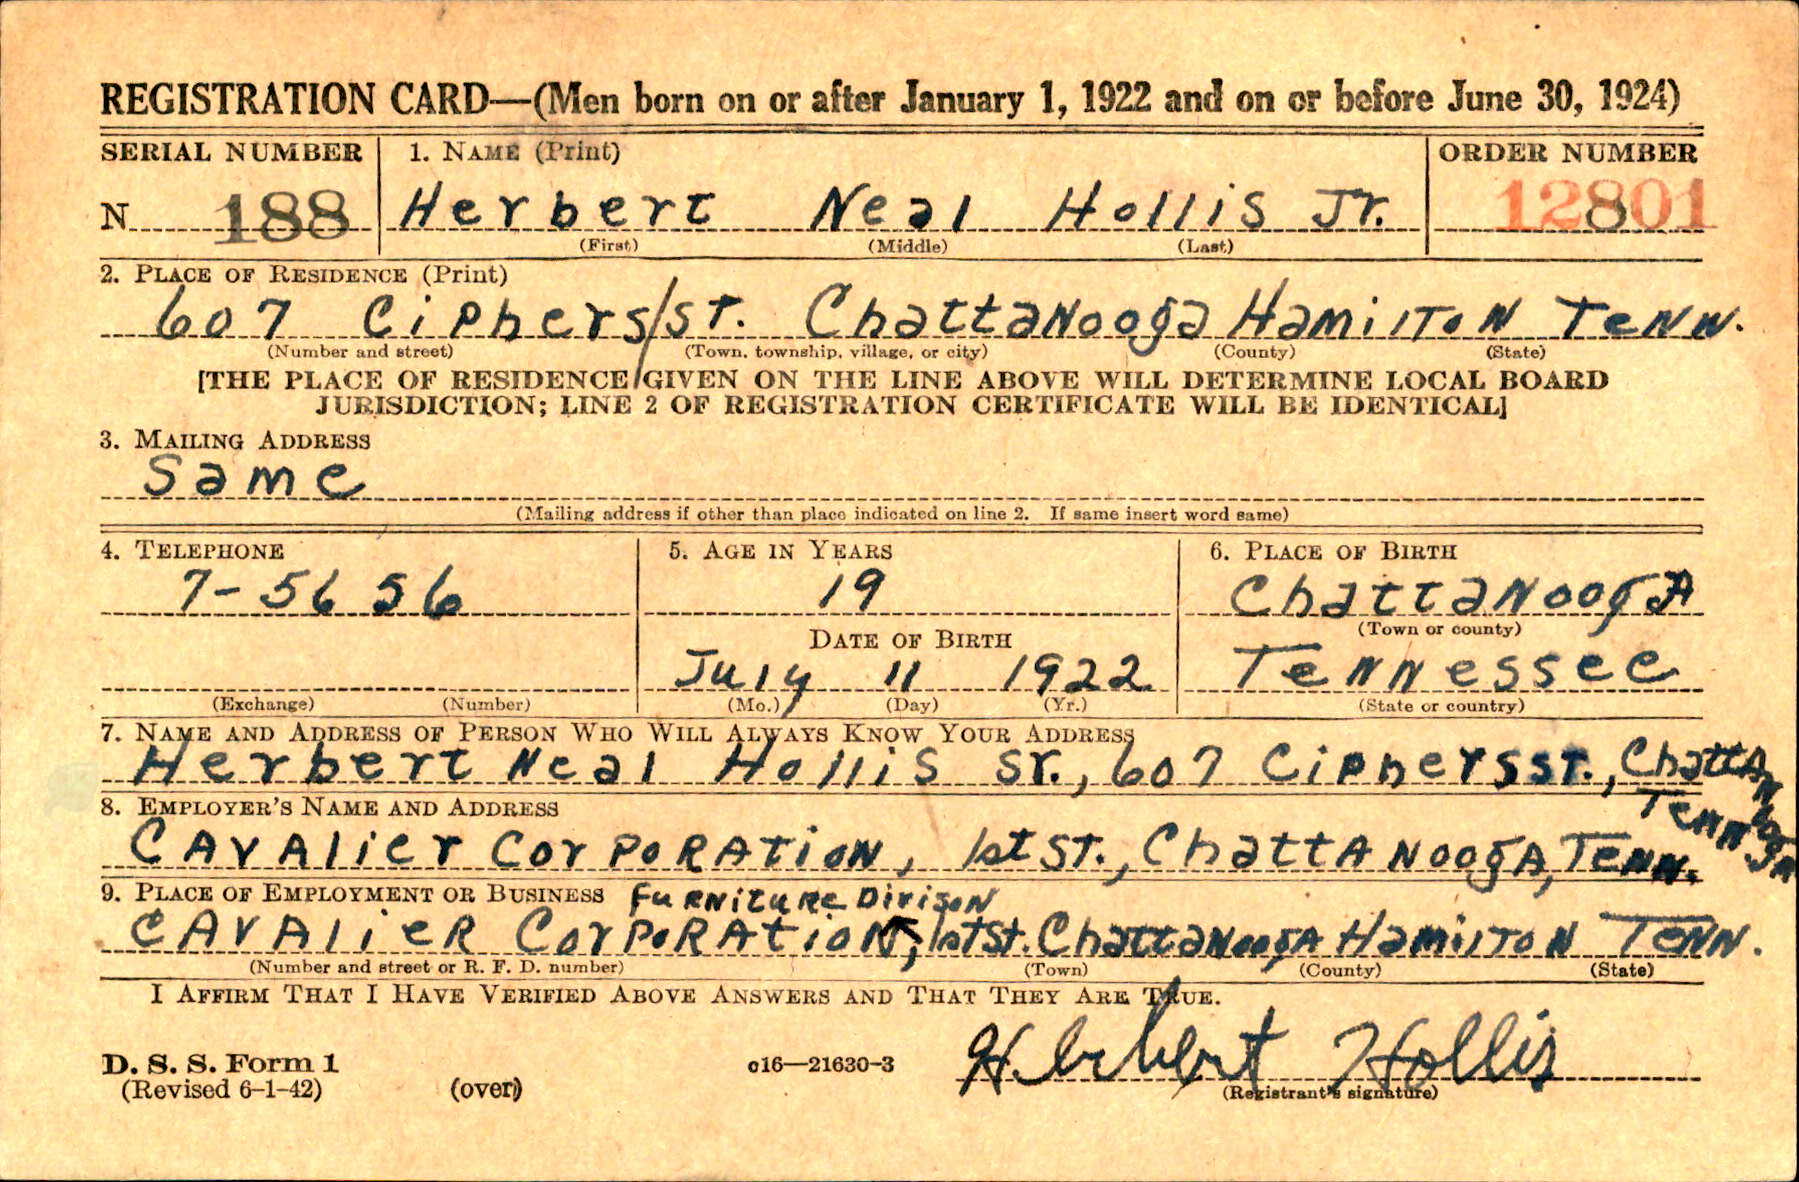 REGISTRATION CARD—(Men born on or after January 1, 1922 and on or before June 30, 1924)
SERIAL NUMBER 1. NAME (Print) ORDER NUMBER
N 188 Herbert Neal Hollis Jr. 12801
(First) (Middle) (Last)
2. PLACE OF RESIDENCE (Print)
607 Ciphers/ST. Chattanooga Hamilton Tenn.
(Number and street) (Town, township, village, or city) (County) (State)
[THE PLACE OF RESIDENCE GIVEN ON THE LINE ABOVE WILL DETERMINE LOCAL BOARD
JURISDICTION; LINE 2 OF REGISTRATION CERTIFICATE WILL BE IDENTICAL]
3. MAILING ADDRESS
Same
(Mailing address if other than place indicated on line 2. If same insert word same)
4. TELEPHONE 5. AGE IN YEARS 6. PLACE OF BIRTH
7-5656 19 Chattanooga
(Town or county)
DATE OF BIRTH
July 11 1922 Tennessee
(Exchange) (Number) (Mo.) (Day) (Yr.) (State or country)
7. NAME AND ADDRESS OF PERSON WHO WILL ALWAYS KNOW YOUR ADDRESS
Herbert Neal Hollis Sr., 607 Ciphers ST., Chattanooga
Tenn
8. EMPLOYER'S NAME AND ADDRESS
Cavalier Corporation, 1st ST., Chattanooga, Tenn.
9. PLACE OF EMPLOYMENT OR BUSINESS Furniture Divison
Cavalier Corporation, 1st St. Chattanooga Hamilton Tenn.
(Number and street or R. F. D. number) (Town) (County) (State)
I AFFIRM THAT I HAVE VERIFIED ABOVE ANSWERS AND THAT THEY ARE TRUE.
D. S. S. Form 1
(Revised 6-1-42) (over) c16—21630-3 Herbert Hollis
(Registrant's signature)